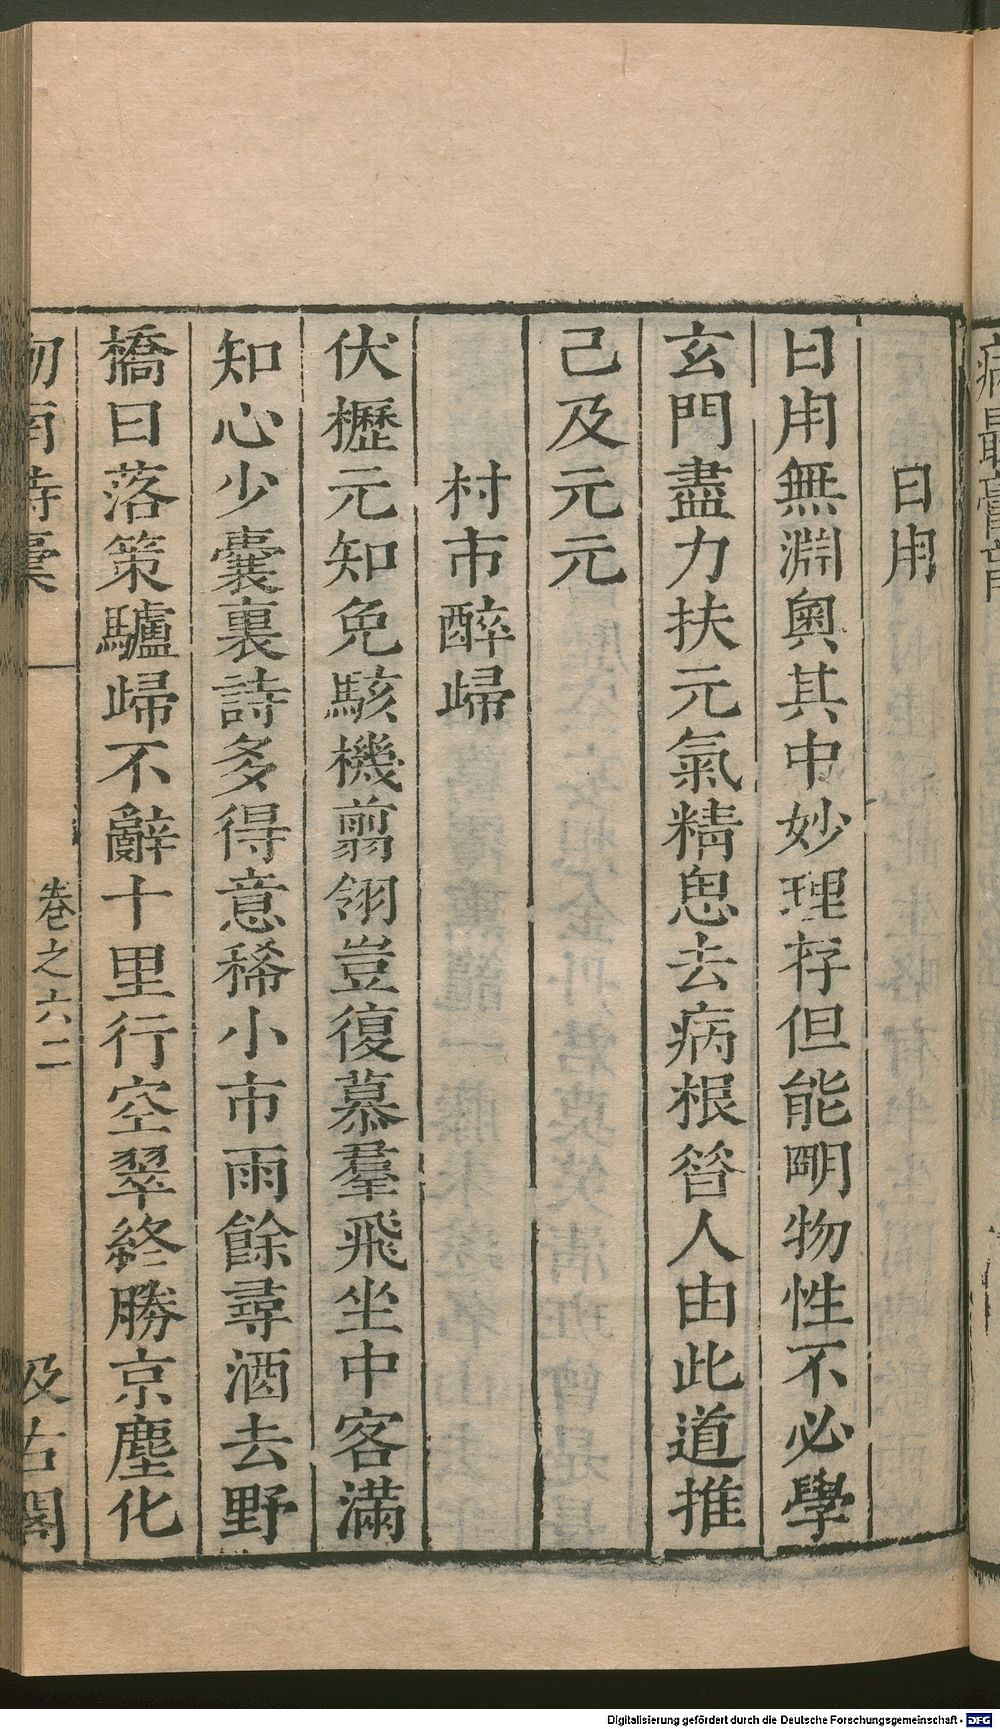 日用
日用無淵奧其中妙理存但能明物性不必學
玄門盡力扶元氣精思去病根昝人由此道推
己及元元
村市醉歸
伏櫪元知免駭機剪翎豈復慕羣飛坐中客滿
知心少囊裏詩多得意稀小市雨餘尋酒去野
橋日落策驢歸不辭十里行空翠終勝京塵化
劒南詩稾
卷之六二
汲古閣
Digitalisierung gefördert durch die Deutsche Forschungsgemeinschaft - DFG